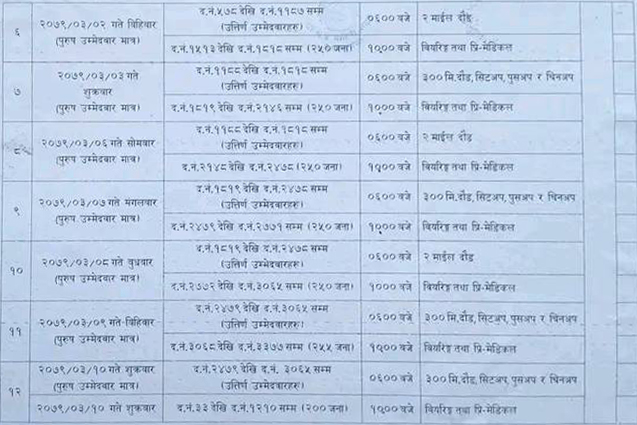 ६
२०७९/०३/०२ गते बिहिवार
(पुरुष उम्मेदवार मात्र)
द.नं.५७८ देखि द.नं.११८७ सम्म
(उत्तिर्ण उम्मेदवारहरु)
०६०० बजे
२ माईल दौड
द.नं.१५१३ देखि द.नं.१८१८ सम्म (२५० जना)
१००० बजे
वियरिङ्ग तथा प्रि-मेडिकल
७
२०७९/०३/०३ गते
शुक्रबार
(पुरुष उम्मेदवार मात्र)
द.नं.११८८ देखि द.नं.१८१८ सम्म
(उत्तिर्ण उम्मेदवारहरु)
०६०० बजे
३०० मि.दौड, सिटअप, पुसअप र चिनअप
द.नं.१८१९ देखि द.नं.२१४६ सम्म (२५० जना)
१००० बजे
वियरिङ्ग तथा प्रि-मेडिकल
८
२०७९/०३/०६ गते सोमवार
(पुरुष उम्मेदवार मात्र)
द.नं.११८८ देखि द.नं.१८१८ सम्म
(उत्तिर्ण उम्मेदवारहरु)
०६०० बजे
२ माईल दौड
द.नं.२१४८ देखि द.नं.२४७८ (२५० जना)
१००० बजे
वियरिङ्ग तथा प्रि-मेडिकल
९
२०७९/०३/०७ गते मंगलबार
(पुरुष उम्मेदवार मात्र)
द.नं.१८१९ देखि द.नं.२४७८ सम्म
(उत्तिर्ण उम्मेदवारहरु)
०६०० बजे
३०० मि.दौड, सिटअप, पुसअप र चिनअप
द.नं.२४७९ देखि द.नं.२७७१ सम्म (२५० जना)
१००० बजे
वियरिङ्ग तथा प्रि-मेडिकल
१०
२०७९/०३/०८ गते बुधवार
(पुरुष उम्मेदवार मात्र)
द.नं.१८१९ देखि द.नं.२४७८ सम्म
(उत्तिर्ण उम्मेदवारहरु)
०६०० बजे
२ माईल दौड
द.नं.२७७२ देखि द.नं.३०६५ सम्म (२५० जना)
१००० बजे
वियरिङ्ग तथा प्रि-मेडिकल
११
२०७९/०३/०९ गते-बिहिवार
(पुरुष उम्मेदवार मात्र)
द.नं.२४७९ देखि द.नं.३०६५ सम्म
(उत्तिर्ण उम्मेदवारहरु)
०६०० बजे
३०० मि.दौड, सिटअप, पुसअप र चिनअप
द.नं.३०६८ देखि द.नं.३३७७ सम्म (२५५ जना)
१००० बजे
वियरिङ्ग तथा प्रि-मेडिकल
१२
२०७९/०३/१० गते शुक्रबार
(पुरुष उम्मेदवार मात्र)
द.नं.२४७९ देखि द.नं. ३०६५ सम्म
(उत्तिर्ण उम्मेदवारहरु)
०६०० बजे
३०० मि.दौड, सिटअप, पुसअप र चिनअप
२०७९/०३/१० गते शुक्रबार
द.नं.३३ देखि द.नं.१२१० सम्म (२०० जना)
१००० बजे
वियरिङ्ग तथा प्रि-मेडिकल